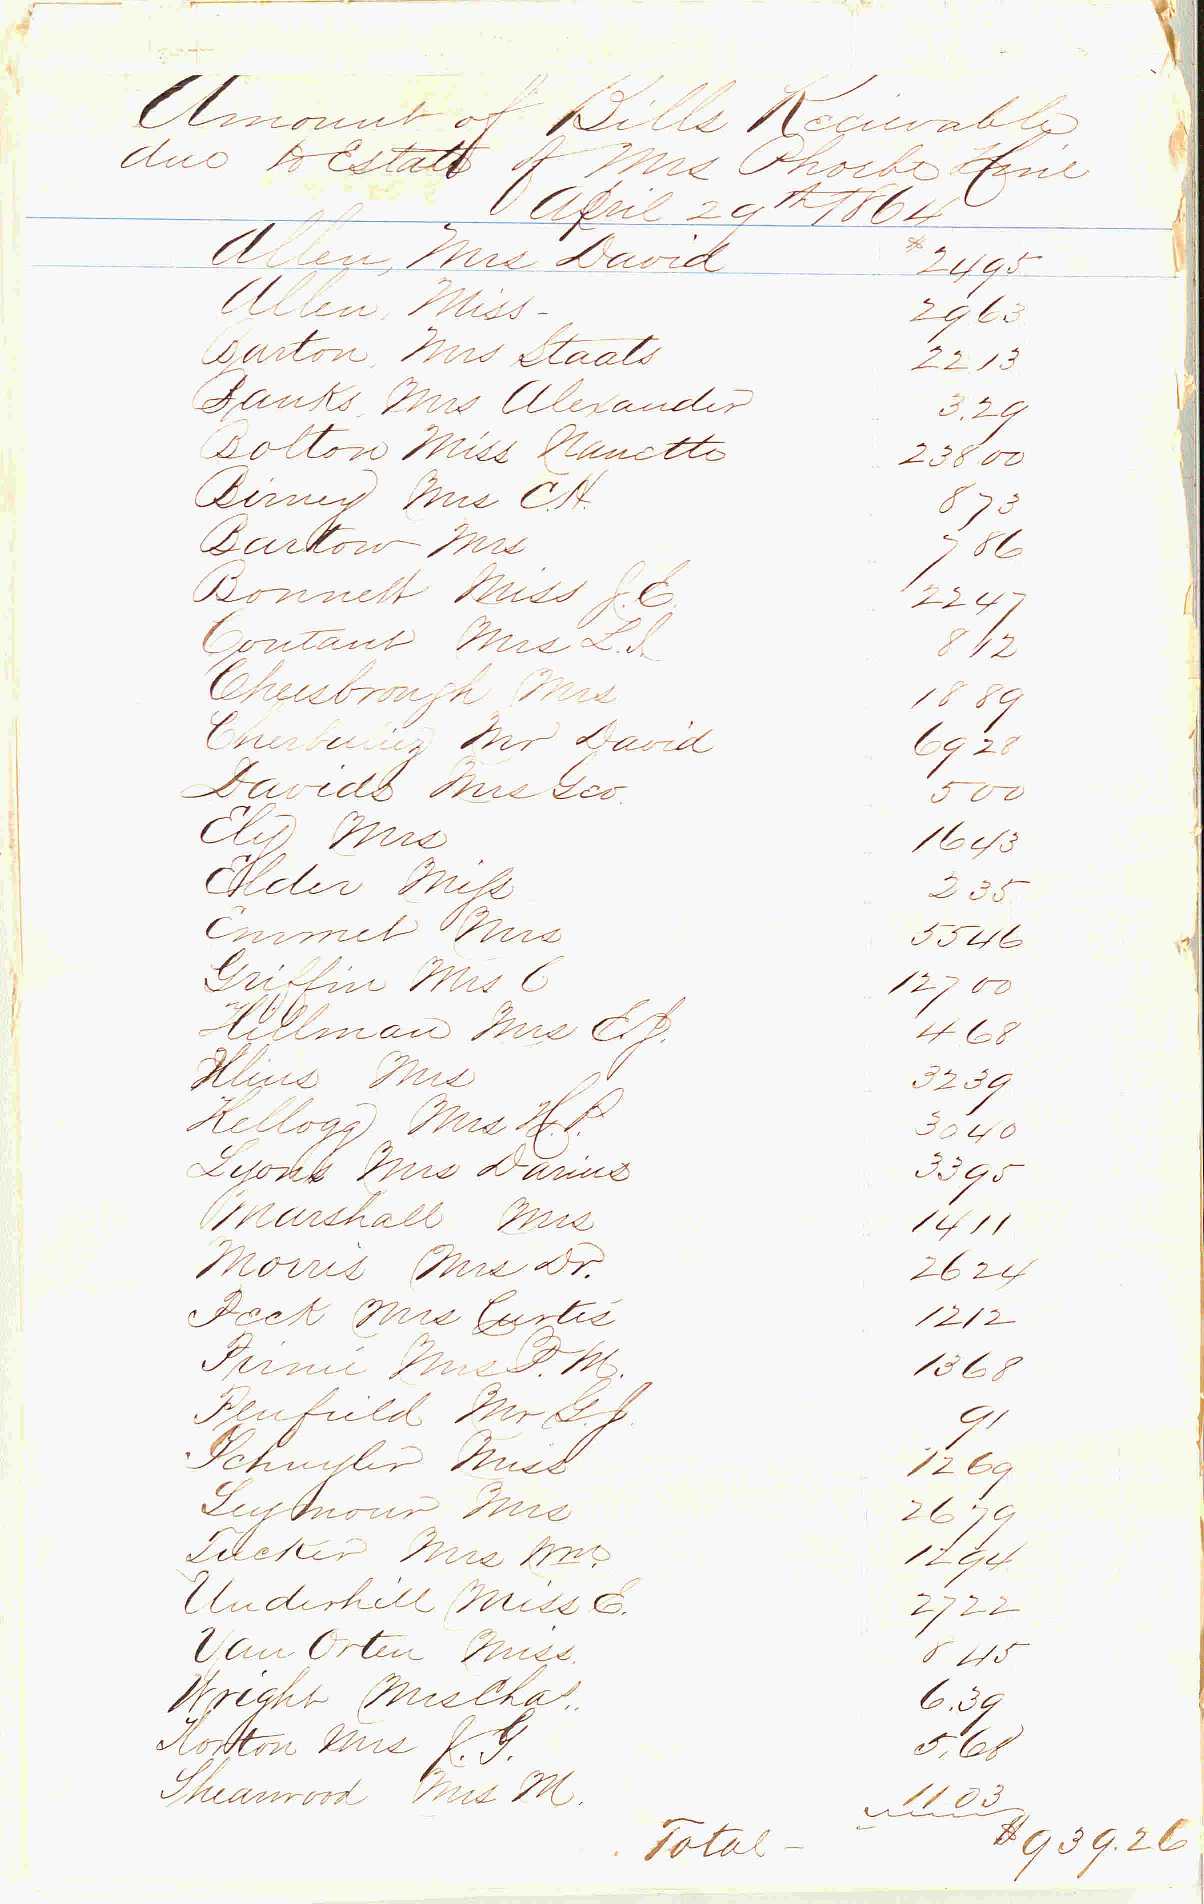 Amount of Bills Recievable
due to Estate of Mrs Phoebe Hine
April 29th 1864
Allen, Mrs David $2495
Allen, Miss - 2963
Barton, Mrs Staats 2213
Banks, Mrs Alexander 3.29
Bolton Miss Nanette 238 00
Birney Mrs C.H. 873
Bartow Mrs 786
Bonnett Miss J.E. 2247
Coutant Mrs L.I. 812
Cheesbrough Mrs 18 89
Cherbuliez Mr David 6928
Davids Mrs Geo. 500
Ely Mrs 1643
Elder Miss 235
Emmet Mrs 5546
Griffin Mrs C 127 00
Hillman Mrs E.J. 468
Mrs 3239
Kellogg Mrs H.P. 3040
Lyons Mrs Darius 3395
Marshall Mrs 1411
Morris Mrs Dr. 2624
Peck Mrs Curtis 1212
Pirnie Mrs P.M. 1368
Penfield Mr G.J. 91
Schuyler Miss 1269
Seymour Mrs 2679
Tucker Mrs Wm. 1294
Underhill Miss E. 2722
Van Orten Miss. 845
Wright Mrs Chas.. 6.39
Horton Mrs J.G. 5.68
Shearwood Mrs M. 1103
Total - $939.26